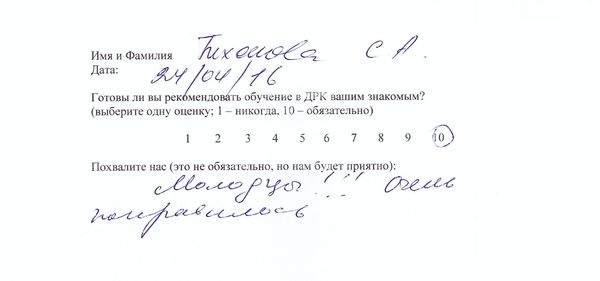 Имя и Фамилия Тихонова С А.
Дата: 24/04/16
Готовы ли вы рекомендовать обучение в ДРК вашим знакомым?
(выберите одну оценку; 1 – никогда, 10 – обязательно)
1 2 3 4 5 6 7 8 9 10
Похвалите нас (это не обязательно, но нам будет приятно):
Молодцы!!! Очень
понравилось